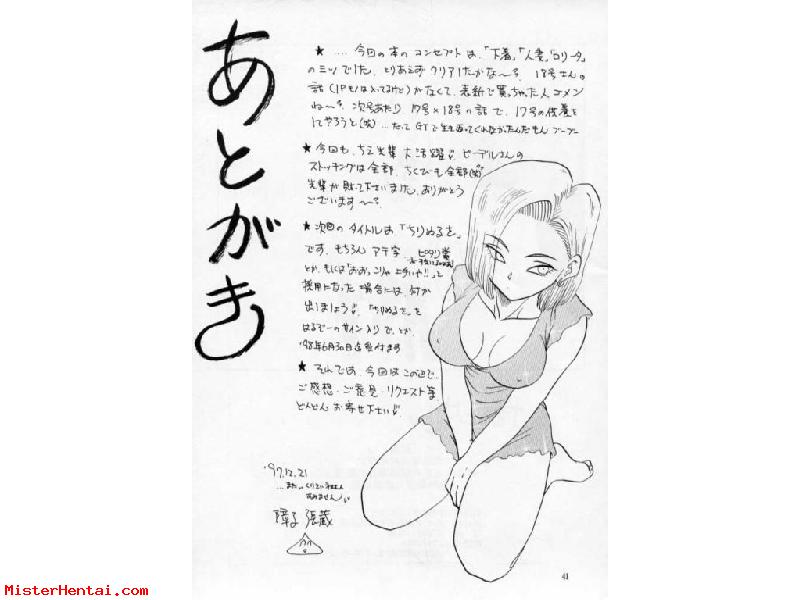 あとがき
★ ‥‥ 今回の本のコンセプトは、「下着」「人妻」「ロリータ」
の三ツでした。とりあえずクリアしたかな〜?。18号さんの
話(1Pモノは入ってるけど)がなくて、表紙で買っちゃった人ゴメン
ね〜?。次号あたり17号×18号の話で、17号の供養を
してやろうと(笑)
だってGTで生き返ってくれなかったんだもん ブーブー
★ 今回も、ちえ先輩大活躍!! ビーデルさんの
ストッキングは全部、ちくびも全部(笑)
先輩が貼って下さいました。ありがとう
ございます〜?。
★ 次回のタイトルは「ちりぬるを」
です。もちろんアテ字
とか、もしくは「おおっこりゃ上手いや!!」って
採用になった場合には、何か
出しましょう!。「ちりぬるを」を
はるでーのサイン入りで。とか。
'98年6月30日迄受付ます
★ そんでは、今回はこの辺で‥
ご感想・ご意見・リクエスト等、
どんどんお寄せ下さい!
'97.12.21
障子張蔵
41
MisterHentai.com